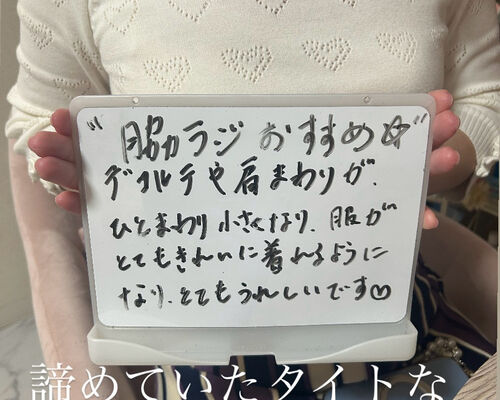 "脇カラジ おすすめ☆"
デコルテや肩まわりが、
ひとまわり小さくなり、服が
とてもきれいに着れるように
なり、とてもうれしいです♡
諦めていたタイトな